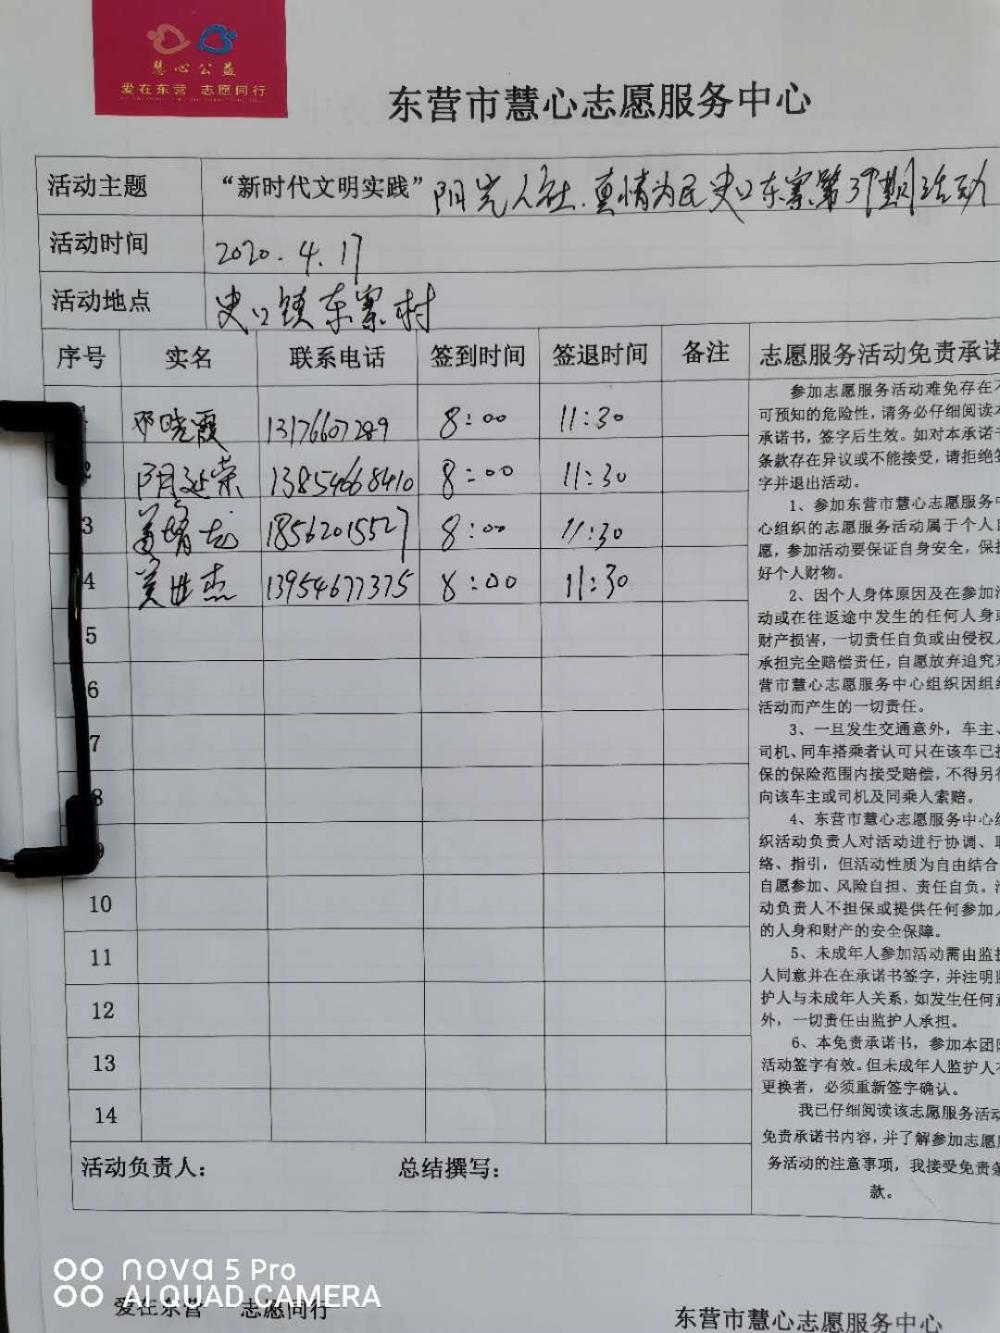 慧心公益
爱在东营 志愿同行
东营市慧心志愿服务中心
活动主题 “新时代文明实践” 阳光人社.真情为民史口东寨第39期活动
活动时间 2020.4.17
活动地点 史口镇东寨村
序号 实名 联系电话 签到时间 签退时间 备注 志愿服务活动免责承诺
1 邓晓霞 13176607289 8:00 11:30
2 阴延荣 13854668410 8:00 11:30
3 18562015527 8:00 11:30
4 世杰 13954677375 8:00 11:30
5
6
7
8
9
10
11
12
13
14
参加志愿服务活动难免存在不
可预知的危险性,请务必仔细阅读本
承诺书,签字后生效。如对本承诺书
条款存在异议或不能接受,请拒绝签
字并退出活动。
1、参加东营市慧心志愿服务中
心组织的志愿服务活动属于个人自
愿,参加活动要保证自身安全,保护
好个人财物。
2、因个人身体原因及在参加活
动或在往返途中发生的任何人身或
财产损害,一切责任自负或由侵权人
承担完全赔偿责任,自愿放弃追究东
营市慧心志愿服务中心组织因组织
活动而产生的一切责任。
3、一旦发生交通意外,车主、
司机、同车搭乘者认可只在该车已投
保的保险范围内接受赔偿,不得另行
向该车主或司机及同乘人索赔。
4、东营市慧心志愿服务中心组
织活动负责人对活动进行协调、联
络、指引,但活动性质为自由结合
自愿参加、风险自担、责任自负。活
动负责人不担保或提供任何参加人
的人身和财产的安全保障。
5、未成年人参加活动需由监护
人同意并在在承诺书签字,并注明监
护人与未成年人关系,如发生任何意
外,一切责任由监护人承担。
6、本免责承诺书,参加本团队
活动签字有效。但未成年人监护人有
更换者,必须重新签字确认。
我已仔细阅读该志愿服务活动
免责承诺书内容,并了解参加志愿服
务活动的注意事项,我接受免责条
款。
活动负责人: 总结撰写:
nova 5 Pro
AI QUAD CAMERA
爱在东营 志愿同行
东营市慧心志愿服务中心